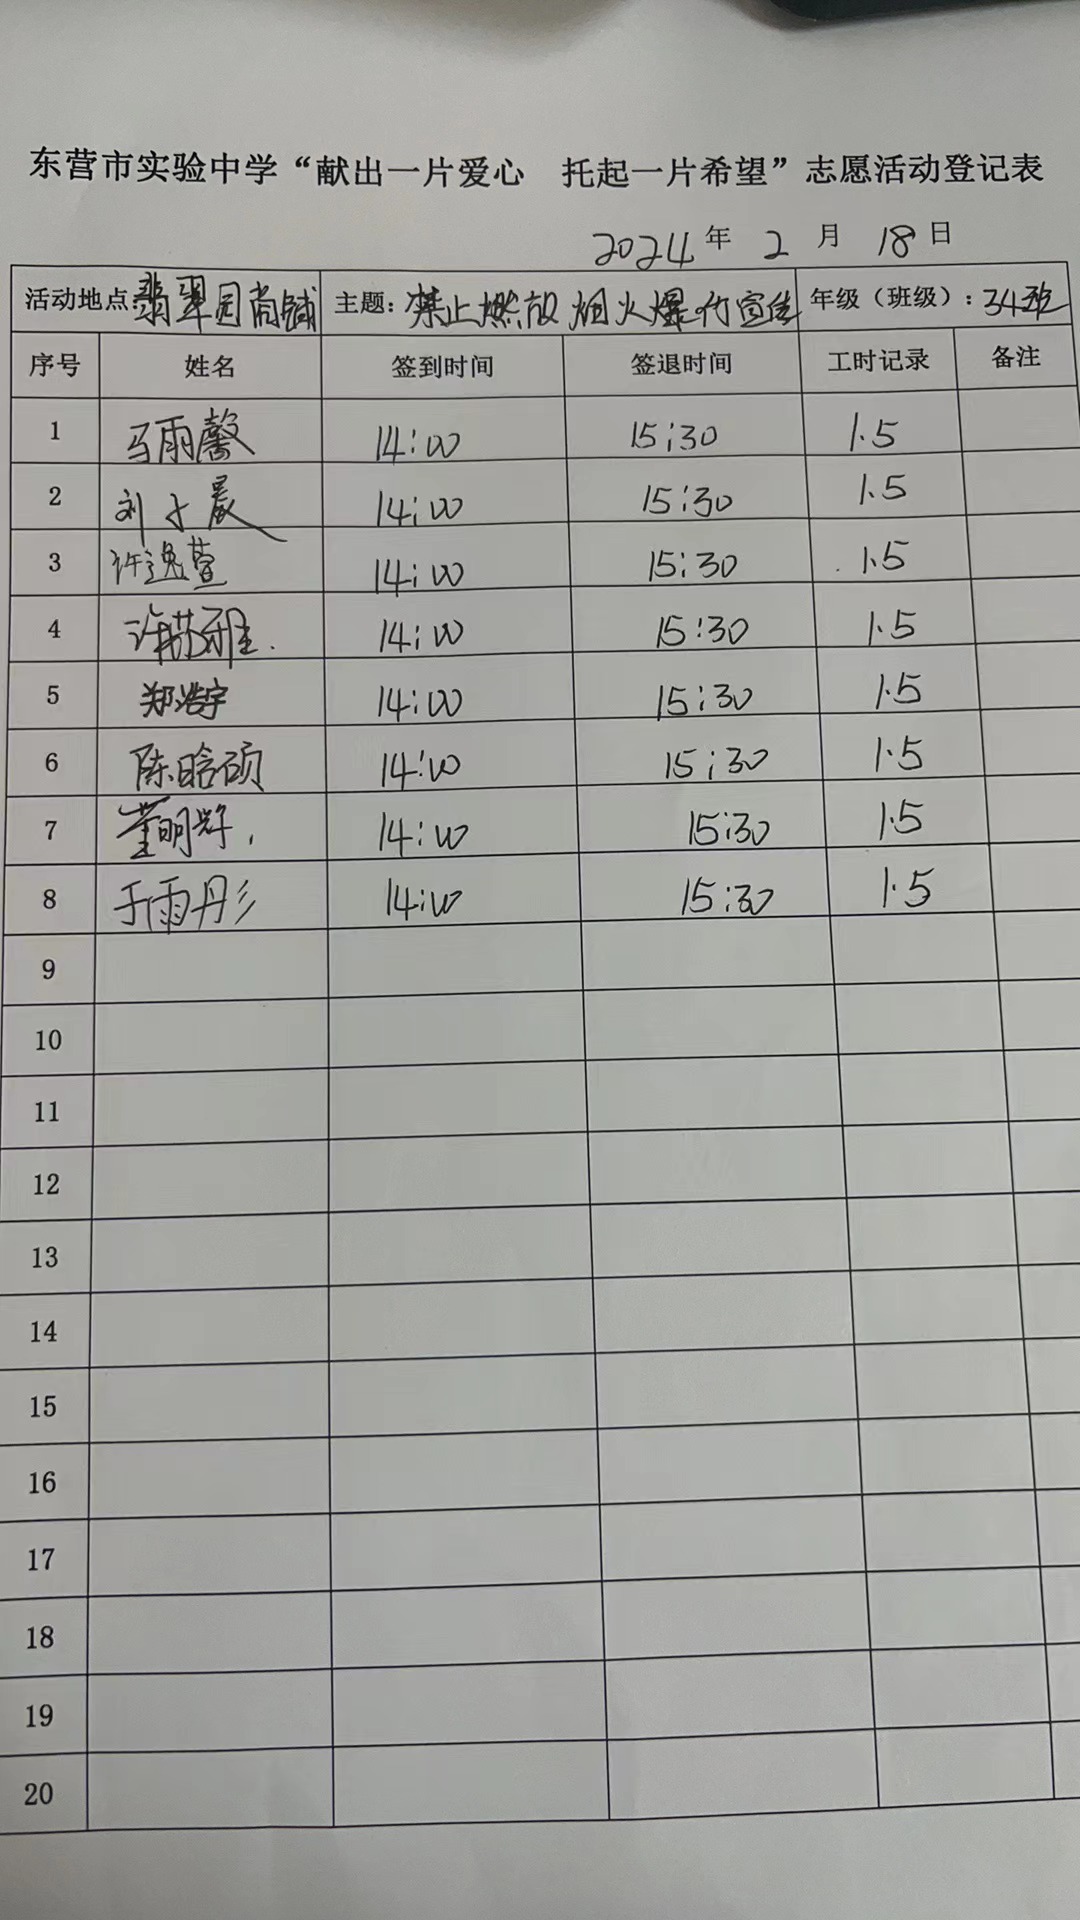 东营市实验中学“献出一片爱心 托起一片希望”志愿活动登记表
2024年 2月 18日
活动地点:翡翠园商铺 主题:禁止燃放烟火爆竹宣传 年级（班级）:34班
序号 姓名 签到时间 签退时间 工时记录 备注
1 马雨馨 14:00 15:30 1.5
2 刘 晨 14:00 15:30 1.5
3 许逸萱 14:00 15:30 1.5
4 许 雅 14:00 15:30 1.5
5 郑浩宇 14:00 15:30 1.5
6 陈晗硕 14:00 15:30 1.5
7 董明辉 14:00 15:30 1.5
8 于雨彤 14:00 15:30 1.5
9
10
11
12
13
14
15
16
17
18
19
20